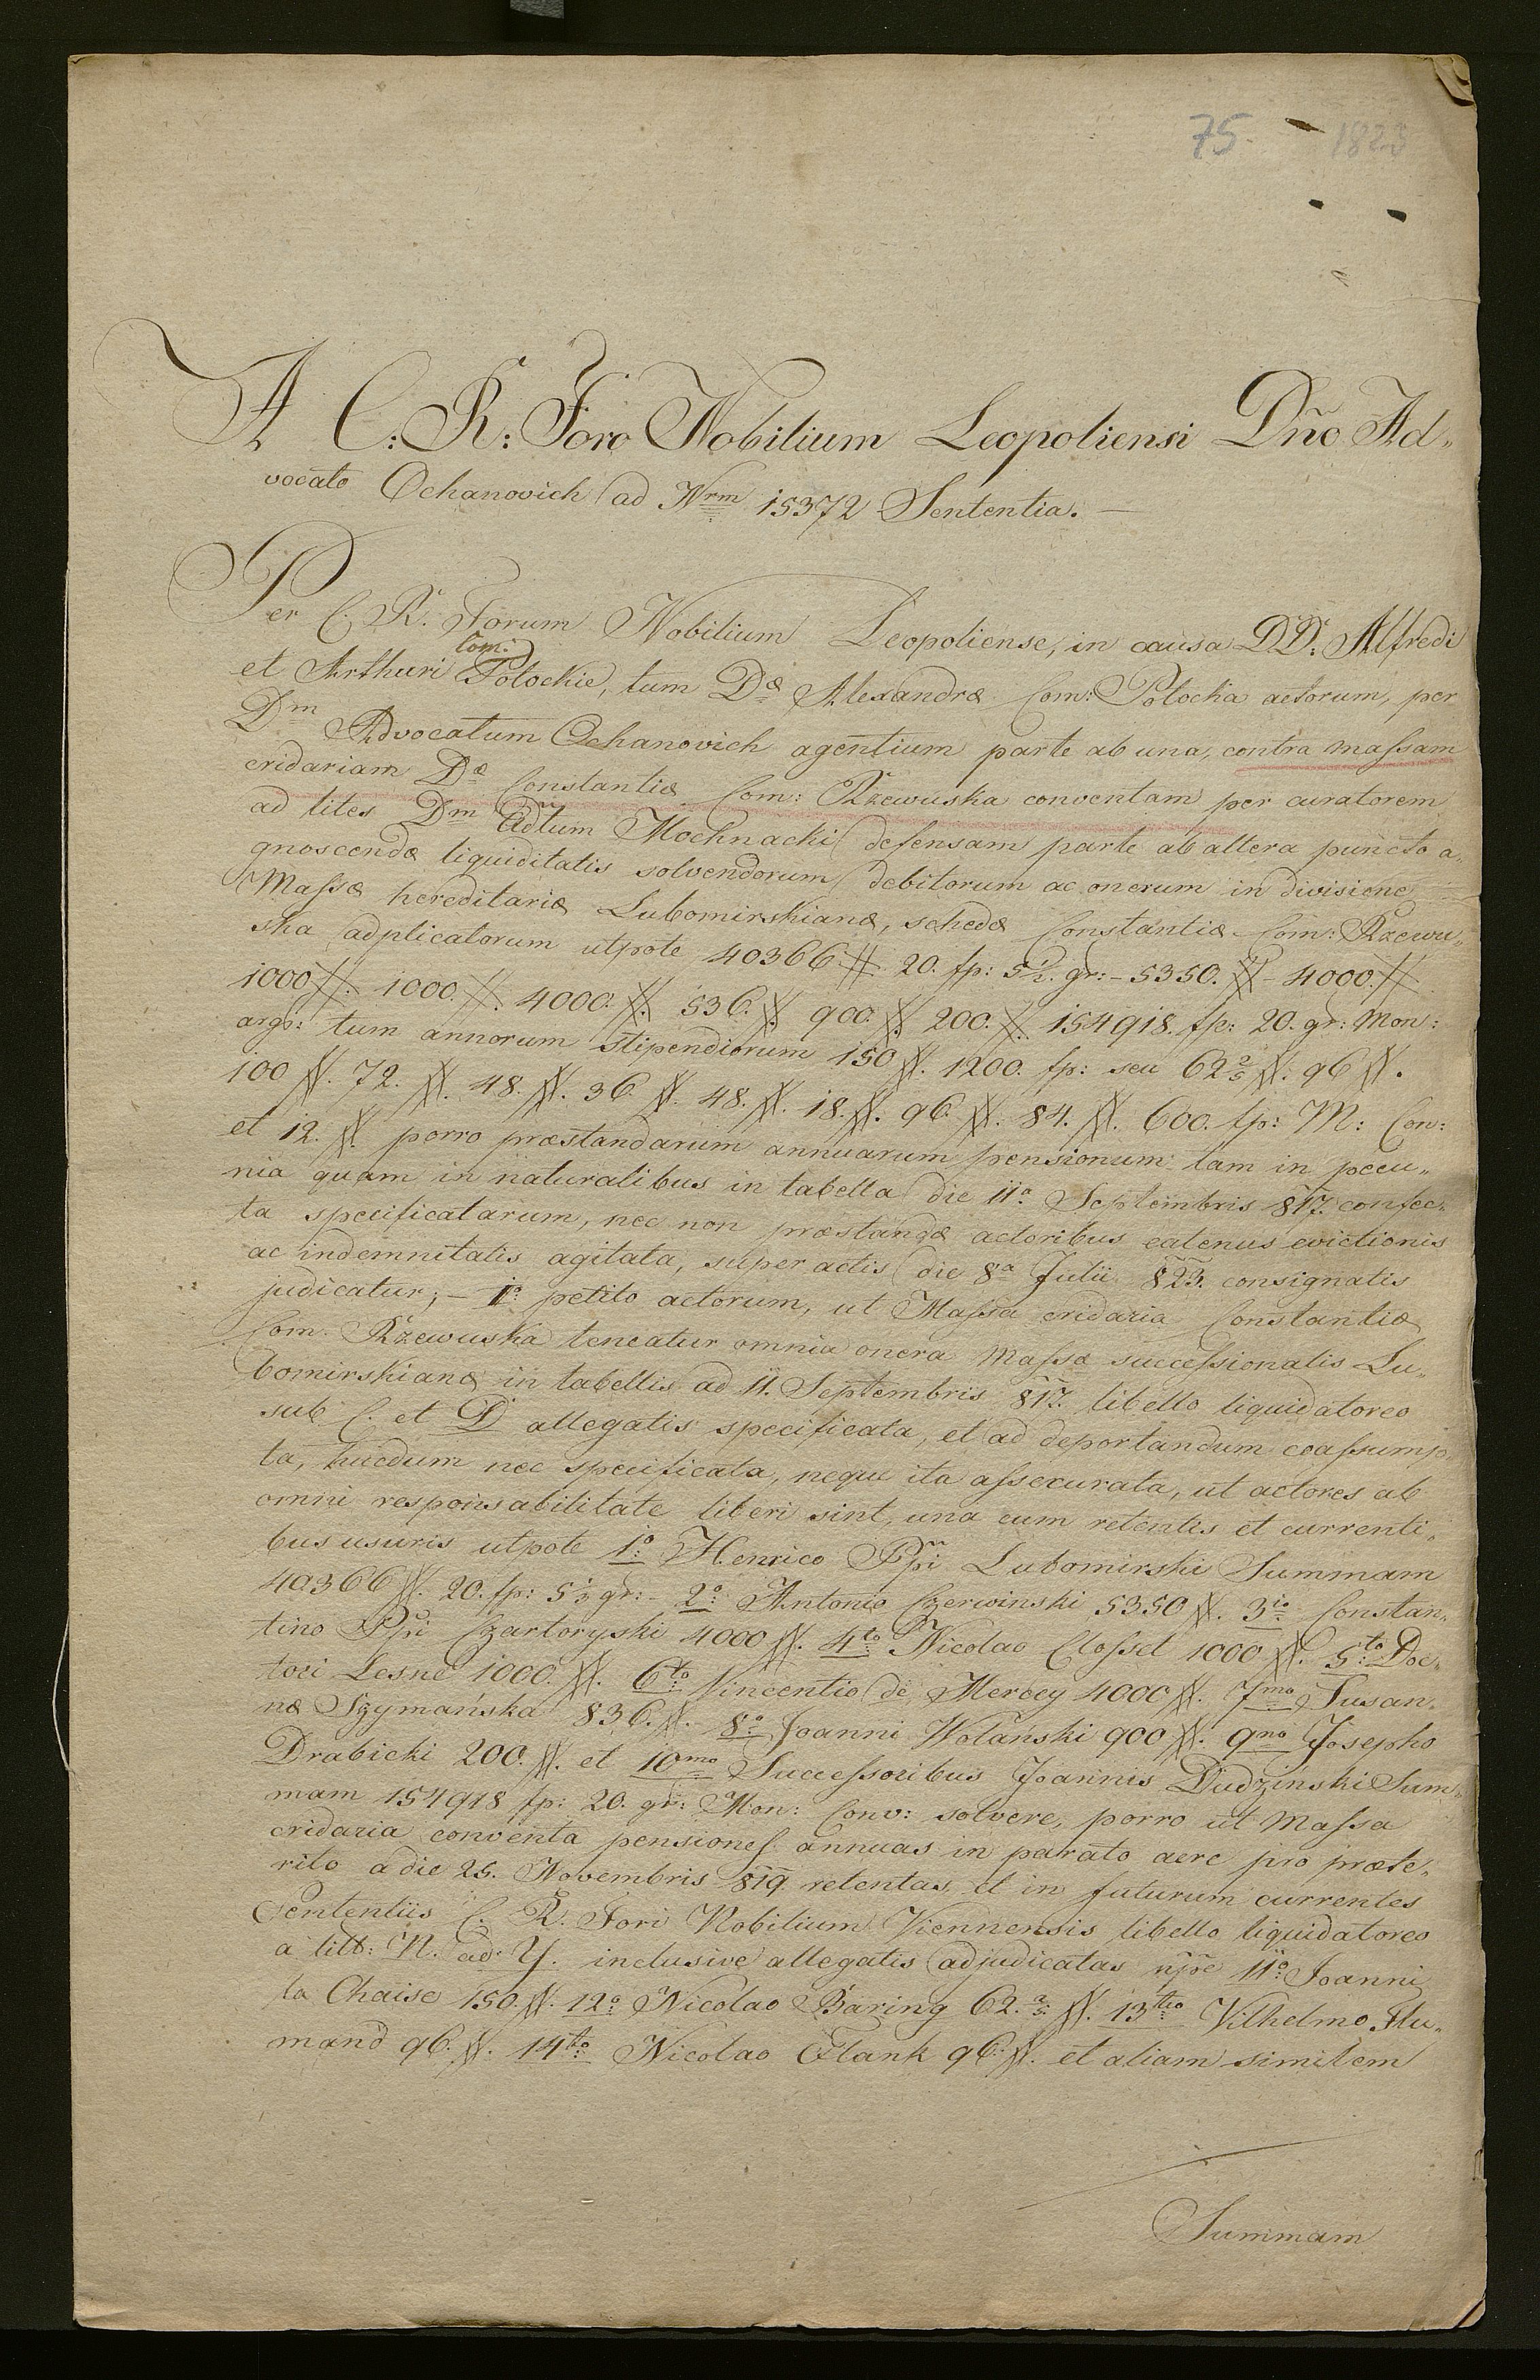 75. 1823
A C: R: Foro Nobilium Leopoliensi Dño Ad„
vocato Ochanovich ad Nrm 15372 Sententia. —
Per C. R. Forum Nobilium Leopoliense, in causa DD: Alfredi
et Arthuri Com: Potockie, tum Dæ Alexandræ Com: Potocka actorum, per
Dm Advocatum Ochanovich agentium parte ab una, contra massam
cridariam Dæ Constantiæ Com: Rzewuska conventam per curatorem
ad lites Dm Adtum Mochnacki defensam parte ab altera puncto a„
gnoscendæ liquiditatis solvendorum debitorum ac onerum in divisione
Massæ hereditariæ Lubomirskianæ, schedæ Constantiæ Com: Rzewu„
ska adplicatorum utpote 40366 #. 20. fp: 5½. gr: – 5350. #. – 4000. #.
1000 #. 1000. #. 4000. #. 536. #. 900. #. 200. #. 154918. fp: 20. gr: Mon:
arg: tum annorum stipendiorum 150 #. 1200. fp: seu 62 2/5 #. 96 #.
100 #. 72. #. 48. #. 36. #. 48. #. 18. #. 96. #. 84. #. 600. fp: M: Con:
et 12. #. porro præstandarum annuarum pensionum tam in pecu„
nia quam in naturalibus in tabella die 11a Septembris 817. confec„
ta specificatarum, nec non præstandæ actoribus eatenus evictionis
ac indemnitatis agitata, super actis die 8a Julii 823. consignatis
judicatur; – 1o petito actorum, ut Massa cridaria Constantiæ
Com. Rzewuska teneatur omnia onera massæ successionalis Lu„
bomirskianæ in tabellis ad 11. Septembris 817. libello liquidatoreo
sub C. et D allegatis specificata, et ad deportandum coassump„
ta, hucdum nec specificata, neque ita assecurata, ut actores ab
omni responsabilitate liberi sint, una cum retentis et currenti„
bus usuris utpote 1o: Henrico Ppi Lubomirski Summam
40366 #. 20. fp: 5½ gr: – 2o: Antonio Czerwinski 5350 #. 3io: Constan„
tino Ppi Czartoryski 4000 #. 4to: Nicolao Closset 1000 #. 5to: Doc„
tori Lesne 1000. #. 6to: Vincentio de Mercey 4000 #. 7mo Susan„
næ Szymańska 836. #. 8o: Joanni Wolański 900 #. 9no Josepho
Drabicki 200. #. et 10mo: Successoribus Joannis Dudziński Sum„
mam 154918 fp: 20. gr: Mon: Conv: solvere, porro ut Massa
cridaria conventa pensiones annuas in parato aere pro præte„
rito a die 25. Novembris 819. retentas, et in futurum currentes
Sententiis C. R. Fori Nobilium Viennensis libello liquidatoreo
a litt: N. ad: Y. inclusive allegatis adjudicatas nppe 11o: Joanni
la Chaise 150. #. 12o: Nicolao Baring 62. 2/5 #. 13tio: Vilhelmo Flu„
mand 96. #. 14to: Nicolao Flank 96. #. et aliam similem
Summam